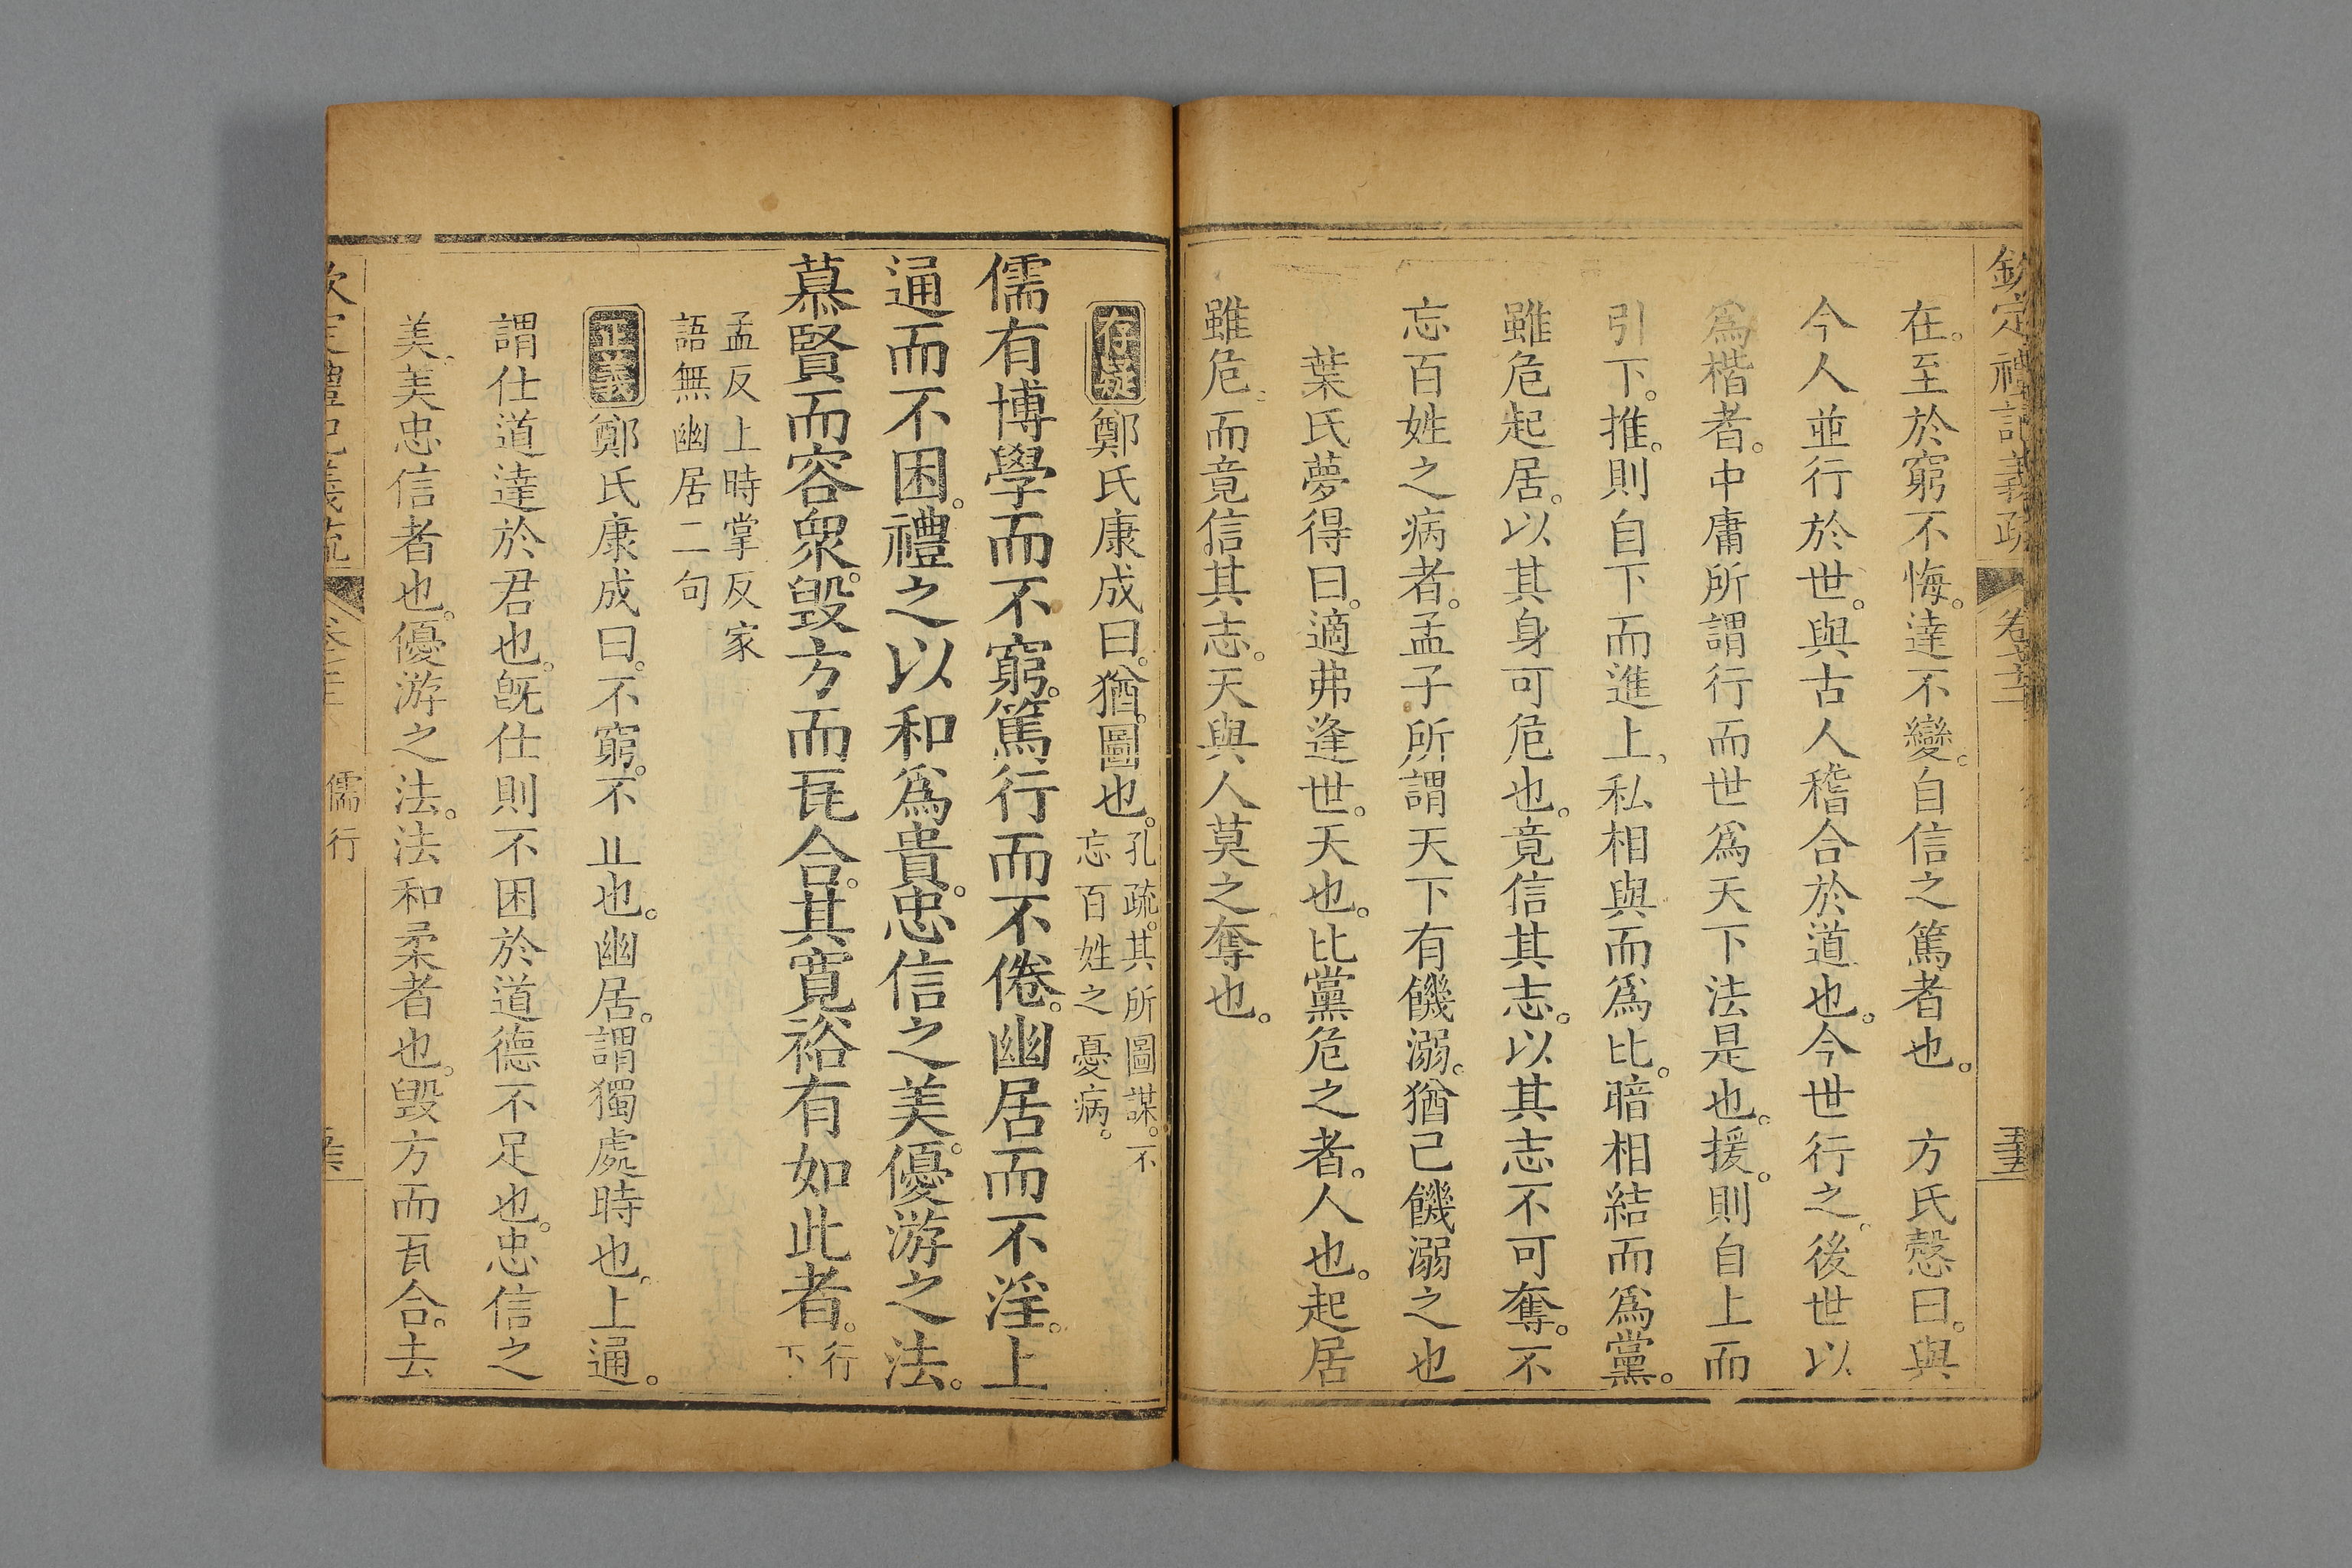 欽定禮記義疏 卷 畫
在。至於窮不悔。達不變。自信之篤者也。 方氏慤曰。與
今人並行於世。與古人稽合於道也。今世行之。後世以
爲楷者。中庸所謂行而世爲天下法是也。援。則自上而
引下。推。則自下而進上。私相與而爲比。暗相結而爲黨。
雖危起居。以其身可危也。竟信其志。以其志不可奪。不
忘百姓之病者。孟子所謂天下有饑溺。猶己饑溺之也
葉氏夢得曰。適弗逢世。天也。比黨危之者。人也。起居
雖危。而竟信其志。天與人莫之奪也。
存疑 鄭氏康成曰。猶。圖也。孔疏。其所圖謀。不
忘百姓之憂病。
儒有博學而不窮。篤行而不倦。幽居而不淫。上
通而不困。禮之以和爲貴。忠信之美。優游之法。
慕賢而容衆。毀方而瓦合。其寬裕有如此者。行
下
孟反上時掌反家
語無幽居二句
正義 鄭氏康成曰。不窮。不止也。幽居。謂獨處時也。上通。
謂仕道達於君也。旣仕則不困於道德不足也。忠信之
美。美忠信者也。優游之法。法和柔者也。毀方而瓦合。去
儒行